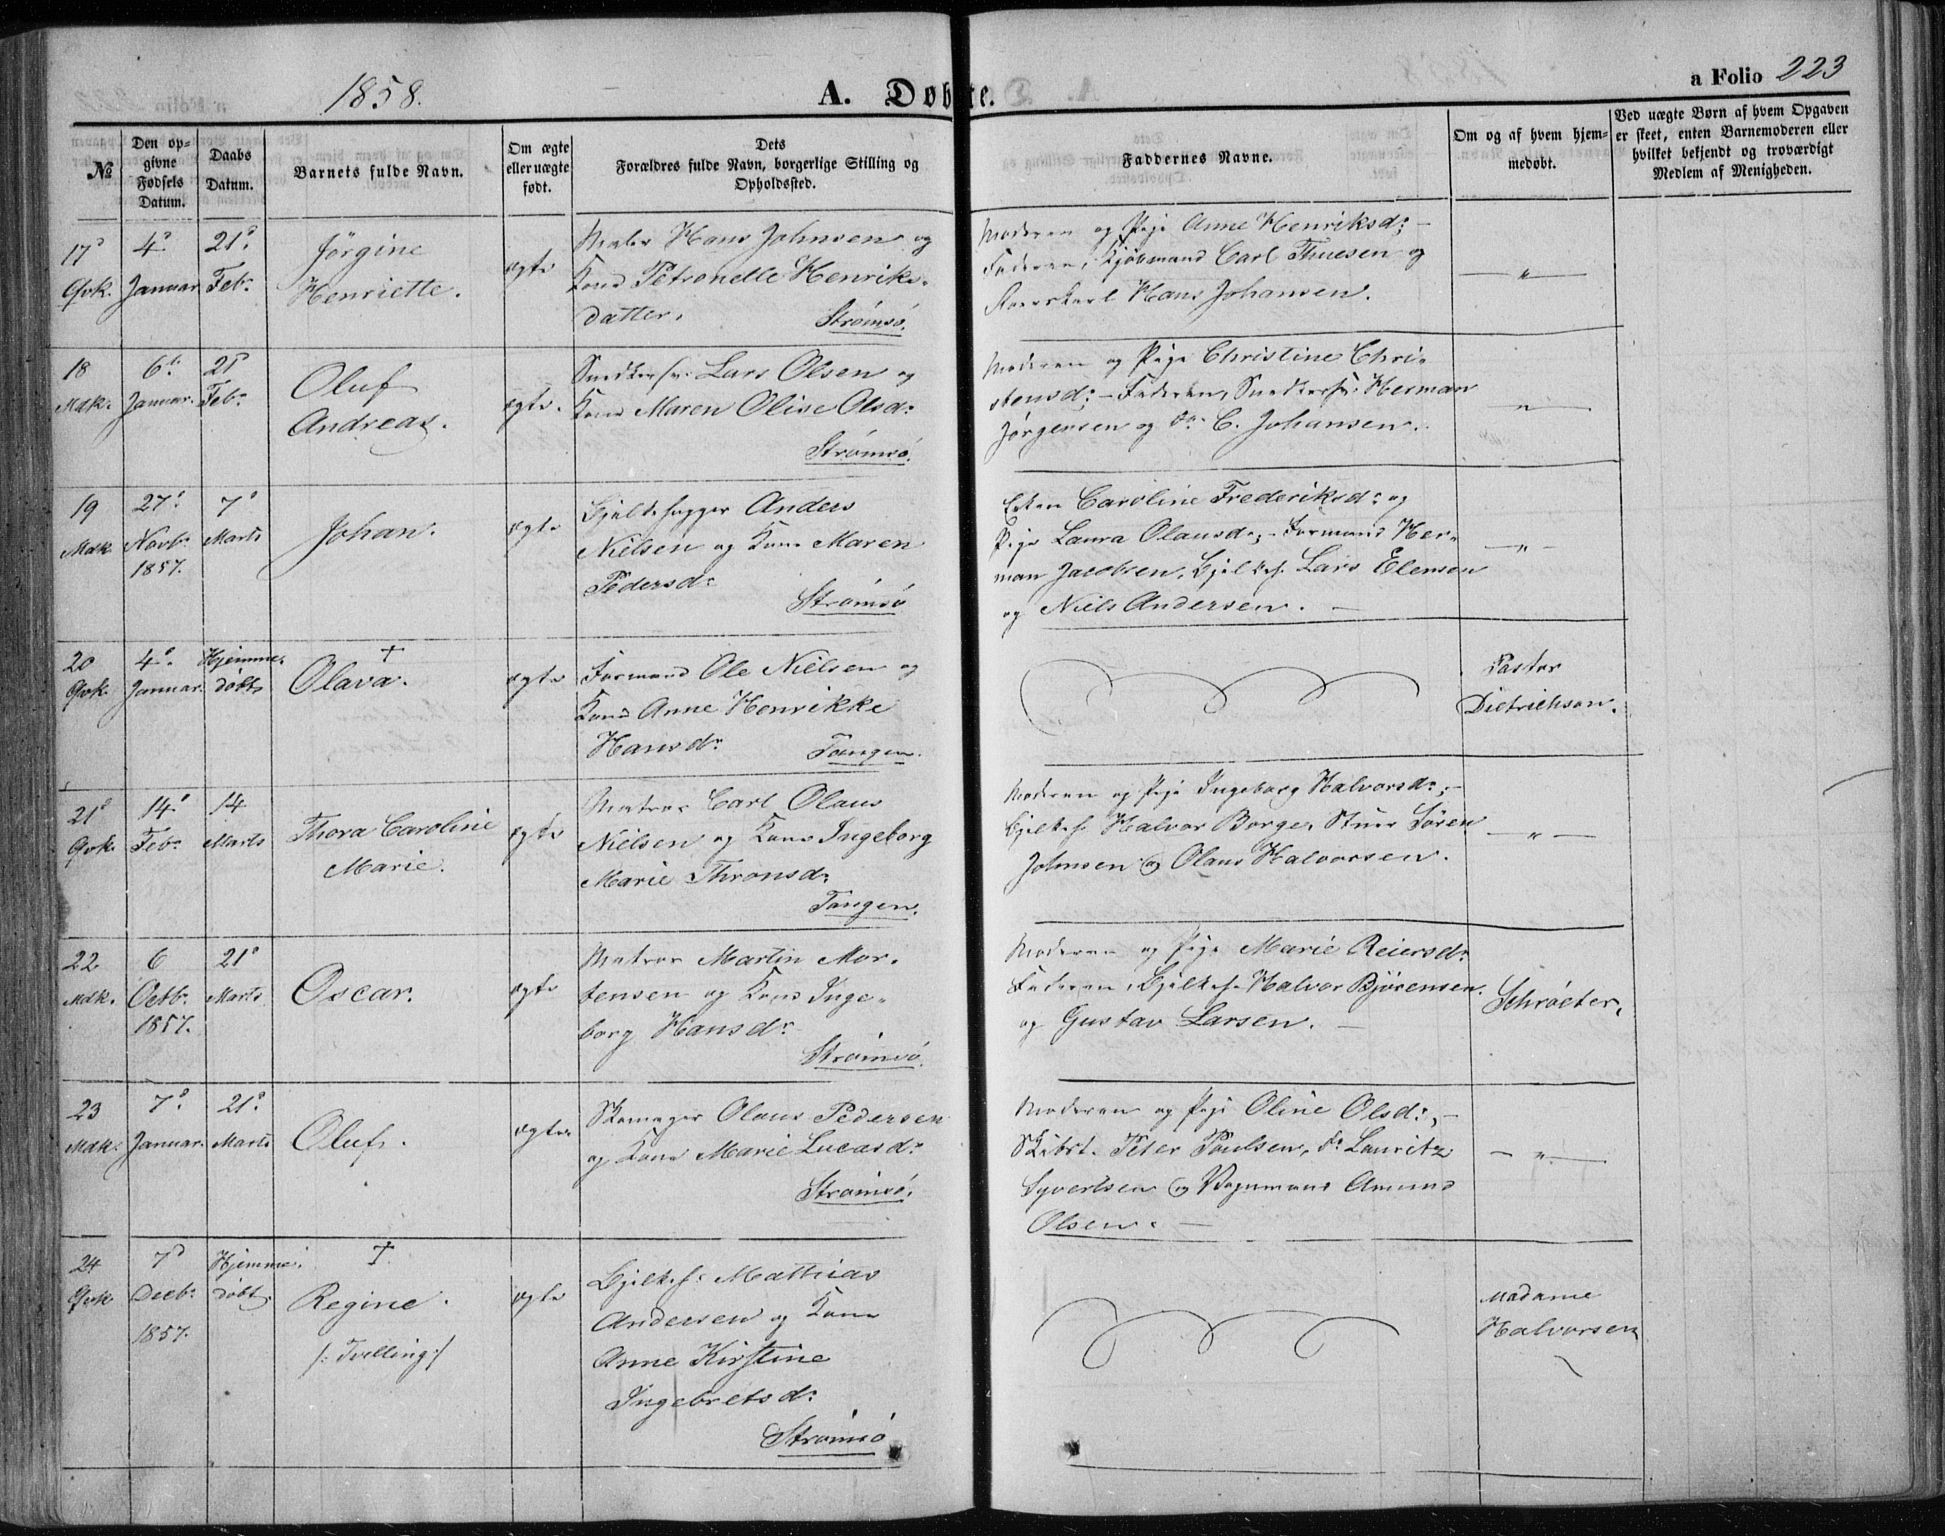 1858.
A. Døbte.
a Folio 223
№
Den op-
givne
Fødsels
Datum.
Daabs
Datum.
Barnets fulde Navn.
Om ægte
eller uægte
født.
Dets
Forældres fulde Navn, borgerlige Stilling og
Opholdssted.
Faddernes Navne.
Om og af hvem hjem-
medøbt.
Ved uægte Børn af hvem Opgaven
er skeet, enten Barnemoderen eller
hvilket bekjendt og troværdigt
Medlem af Menigheden.
17
Qvk.
4
Januar
21
Feb.
Jørgine
Henriette.
ægte
Hans Johnsen og
Kone Petronelle Henriks-
datter.
Strømsø.
Moderen og Pige Anne Henriksd: –
Faderen, Kjøbmand Carl Thuesen og
Hans Johansen.
— " —
18
Mdk.
6
Januar.
21
Feb.
Oluf
Andreas.
ægte.
Snedkersv. Lars Olsen og
Kone Maren Oline Olsd:
Strømsø.
Moderen og Pige Christine Chri-
stensd: – Faderen, Snedkersv. Herman
Jørgensen og do C. Johansen.
— " —
19
Mdk.
27
Novb.
1857.
7
Marts
Johan.
ægte
Bjelkehugger Anders
Nielsen og Kone Maren
Pedersd:
Strømsø
Enken Caroline Frederiksd: og
Pige Laura Olausd: – Formand Her-
man Jacobsen, Bjelkeh. Lars Elensen
og Niels Andersen. –
— " —
20
Qvk.
4
Januar.
Hjemme-
døbt
†
Olava.
ægte
Formand Ole Nielsen og
Kone Anne Henrikke
Hansd:
Tangen.
Pastor
Dietrichson.
21
Qvk.
14
Feb.
14
Marts
Thora Caroline
Marie.
ægte
Matros Carl Olaus
Nielsen og Kone Ingeborg
Marie Thronsd:
Tangen.
Moderen og Pige Ingeborg Halvorsd: –
Bjelkeh. Halvor Borge, Stuer Søren
Johnsen og Olaus Halvorsen.
— " —
22
Mdk.
6
Octb.
1857.
21
Marts
Oscar.
ægte
Matros Martin Mor-
tensen og Kone Inge-
borg Hansd:
Strømsø
Moderen og Pige Marie Reiersd:
Faderen, Bjelkeh. Halvor Bjørensen
og Gustav Larsen. –
Schrøeter.
23
Mdk.
7
Januar.
21
Marts
Oluf.
ægte
Skomager Olaus Pedersen
og Kone Marie Lucasd:
Strømsø.
Moderen og Pige Oline Olsd: –
Skibst. Peter Poulsen, do Lauritz
Syvertsen og Vognmand Amund
Olsen. –
— " —
24
Qvk
7
Decb.
1857.
Hjemme-
døbt.
†
Regine.
/: Tvilling:/
ægte
Bjelkeh. Mathias
Andersen og Kone
Anne Kirstine
Ingebretsd:
Strømsø
Madame
Halvorsen